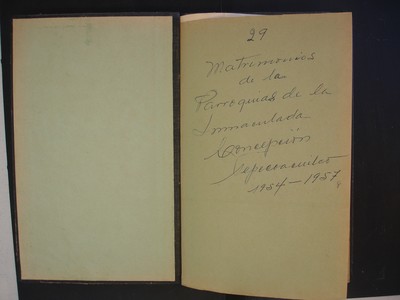 29
Matrimonios
de la
Parroquias de la
Inmaculada
Concepción
Tepecoacuilco
1954-1957